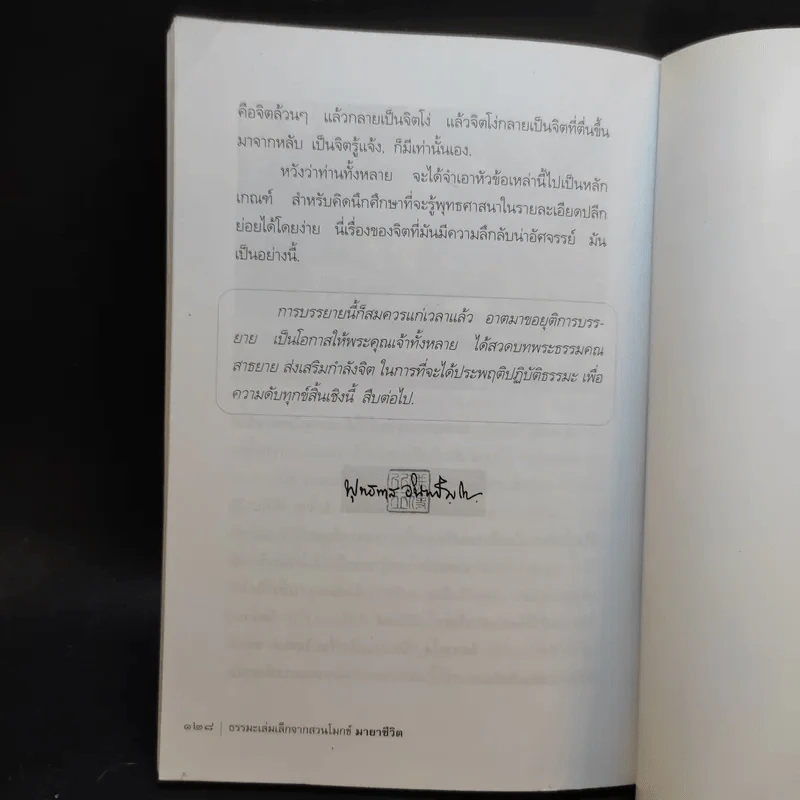 คือจิตล้วนๆ แล้วกลายเป็นจิตโง่ แล้วจิตโง่กลายเป็นจิตที่ตื่นขึ้น
มาจากหลับ เป็นจิตรู้แจ้ง, ก็มีเท่านั้นเอง.
หวังว่าท่านทั้งหลาย จะได้จำเอาหัวข้อเหล่านี้ไปเป็นหลัก
เกณฑ์ สำหรับคิดนึกศึกษาที่จะรู้พุทธศาสนาในรายละเอียดปลีก
ย่อยได้โดยง่าย นี่เรื่องของจิตที่มันมีความลึกลับน่าอัศจรรย์ มัน
เป็นอย่างนี้.
การบรรยายนี้ก็สมควรแก่เวลาแล้ว อาตมาขอยุติการบรร-
ยาย เป็นโอกาสให้พระคุณเจ้าทั้งหลาย ได้สวดบทพระธรรมคณ
สาธยาย ส่งเสริมกำลังจิต ในการที่จะได้ประพฤติปฏิบัติธรรมะ เพื่อ
ความดับทุกข์สิ้นเชิงนี้ สืบต่อไป.
พุทธทาส อินทปัญโญ
๑๒๘ | ธรรมะเล่มเล็กจากสวนโมกข์ มายาชีวิต